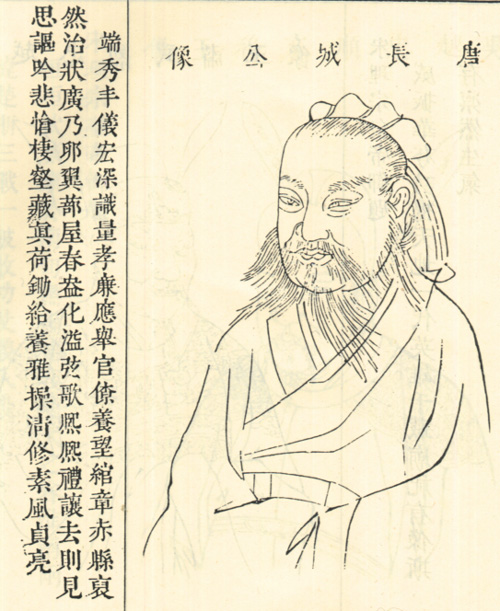 唐長城公像
端秀丰儀宏深識量孝廉應舉官僚養望綰章赤縣裒
然治狀廣乃卵翼蔀屋春盎化溢弦歌熙熙禮讓去則見
思謳吟悲愴棲壑藏真荷鋤給養雅操清修素風貞亮